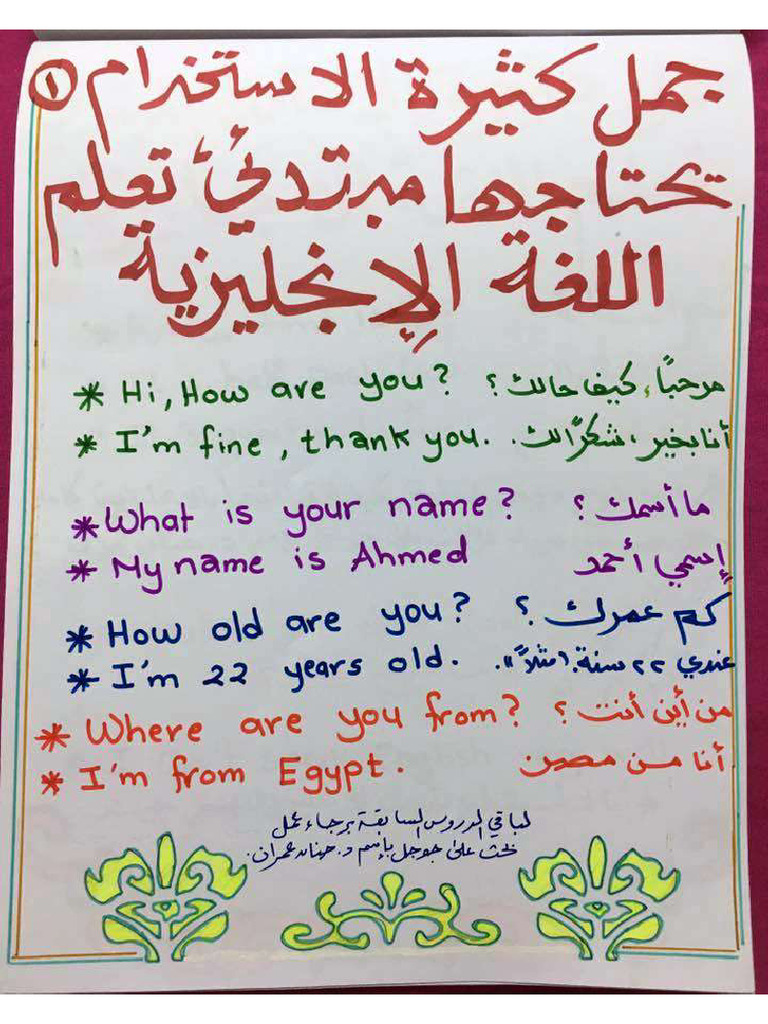 جمل كثيرة الاستخدام ١
تحتاجها مبتدئ تعلم
اللغة الإنجليزية
* Hi, How are you? مرحباً، كيف حالك؟
* I'm fine, thank you. أنا بخير، شكراً لك.
* What is your name? ما أسمك؟
* My name is Ahmed إسمي أحمد
* How old are you? كم عمرك؟
* I'm 22 years old. عندي ٢٢ سنة. "مثلاً".
* Where are you from? من أين أنت؟
* I'm from Egypt. أنا من مصر
لباقي الدروس السابقة برجاء عمل
بحث على جوجل بإسم د. حنان عمران.